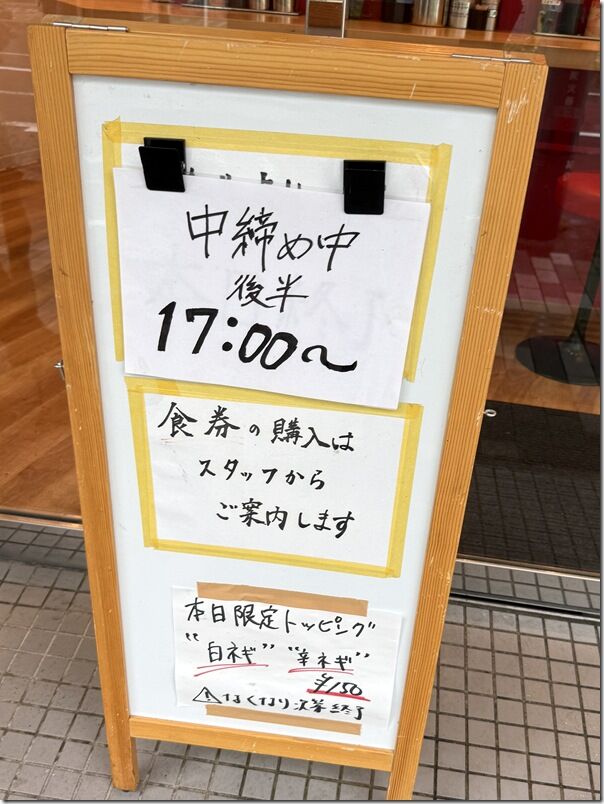 中締め中
後半
17:00〜
食券の購入は
スタッフから
ご案内します
本日限定トッピング
"白ネギ" "辛ネギ"
¥150
⚠なくなり次第終了